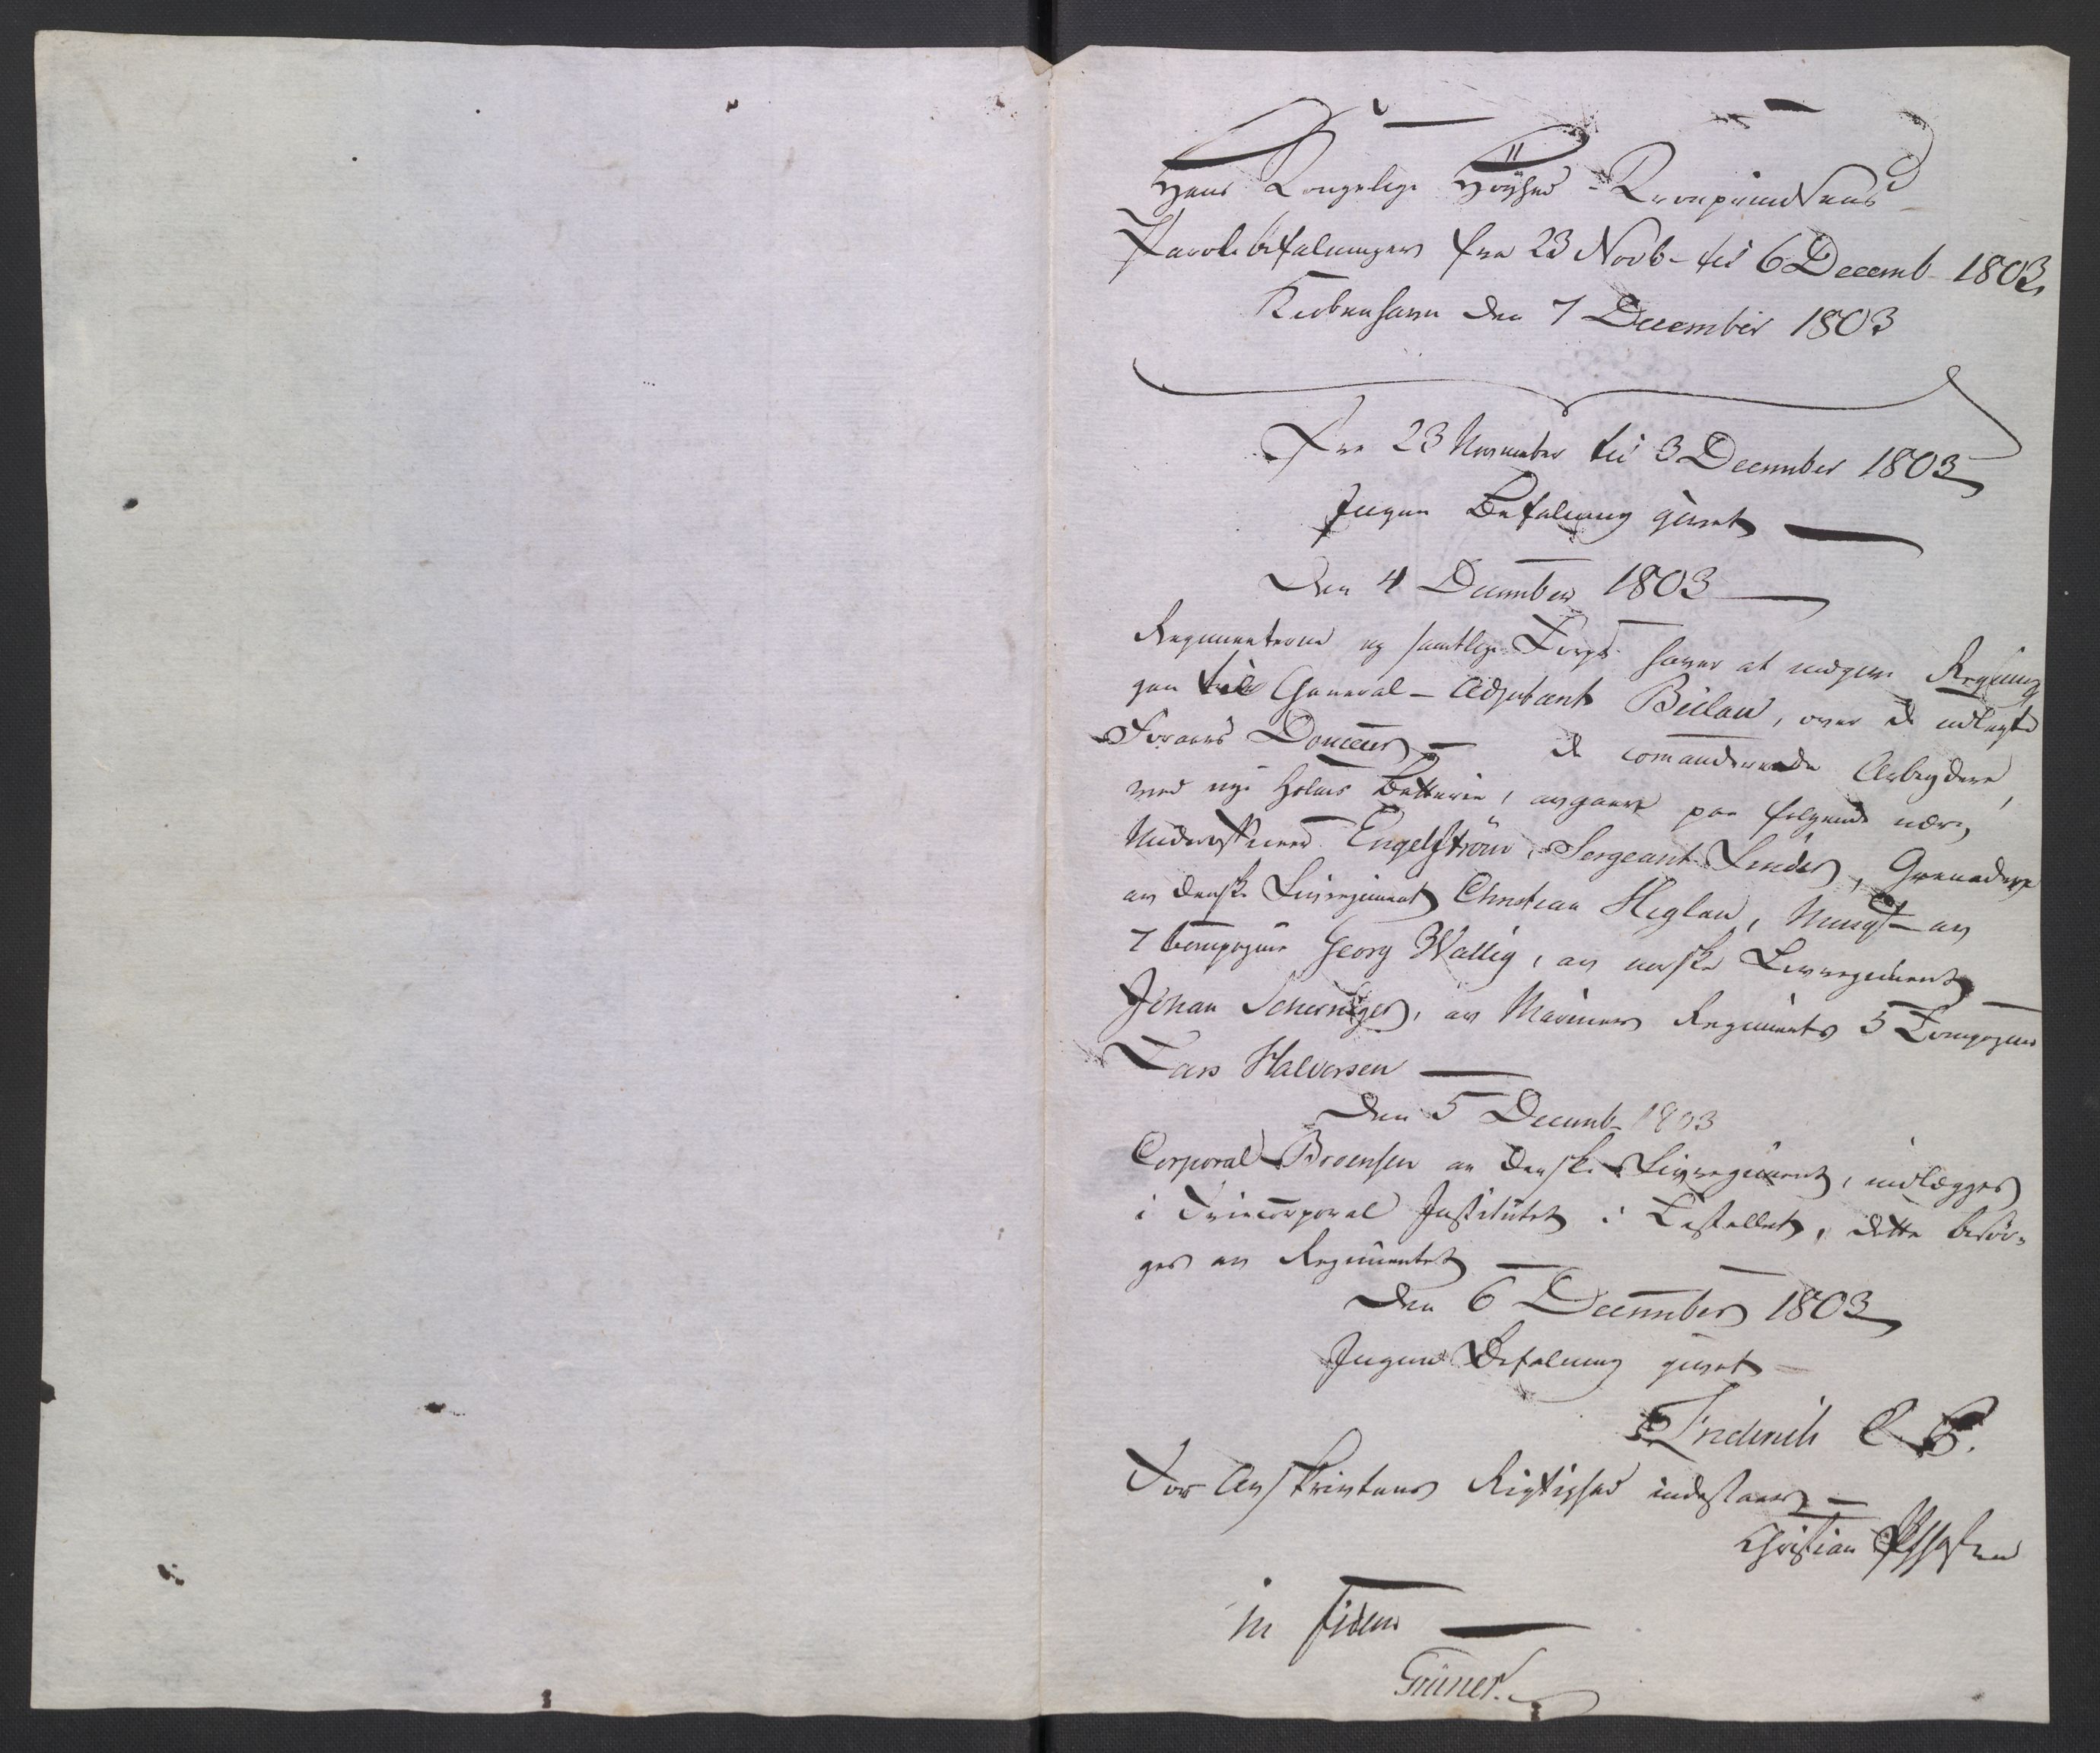 Hans Kongelige Höyhed Kronprindsens
Parolebefalninger fra 23 Novb- til 6 Decemb- 1803,
Kiöbenhavn den 7 December 1803
Fra 23 November til 3 December 1803
Ingen Befalning givet
Den 4 December 1803
Regimenterne og samtlige Corps haver at indgive
gen til General-Adjutant Bülow, over de udlagte
Douceur de comanderende Arbeydere,
ved nye Holms Batterie, afgaaer paa følgende nær,
Engelström, Sergeant Linder, Grenadeer
af danske Livregiment Christian Heglau, af
7 Compagnie Georg Wallig, af norske Livregiment
Johan Schernizer, af Mariner Regiments 5 Compagnie
Lars Halvorsen
Den 5 Decemb- 1803
Corporal Broensen af danske Livregiment, indlægges
i Friecorporal Institutet i Castellet, dette besör-
ges af Regimentet
Den 6 December 1803
Ingen Befalning givet
Friderich C. P.
For Afskrivtens Rigtighed indestaaer
Christian
in fidem
Grüner.